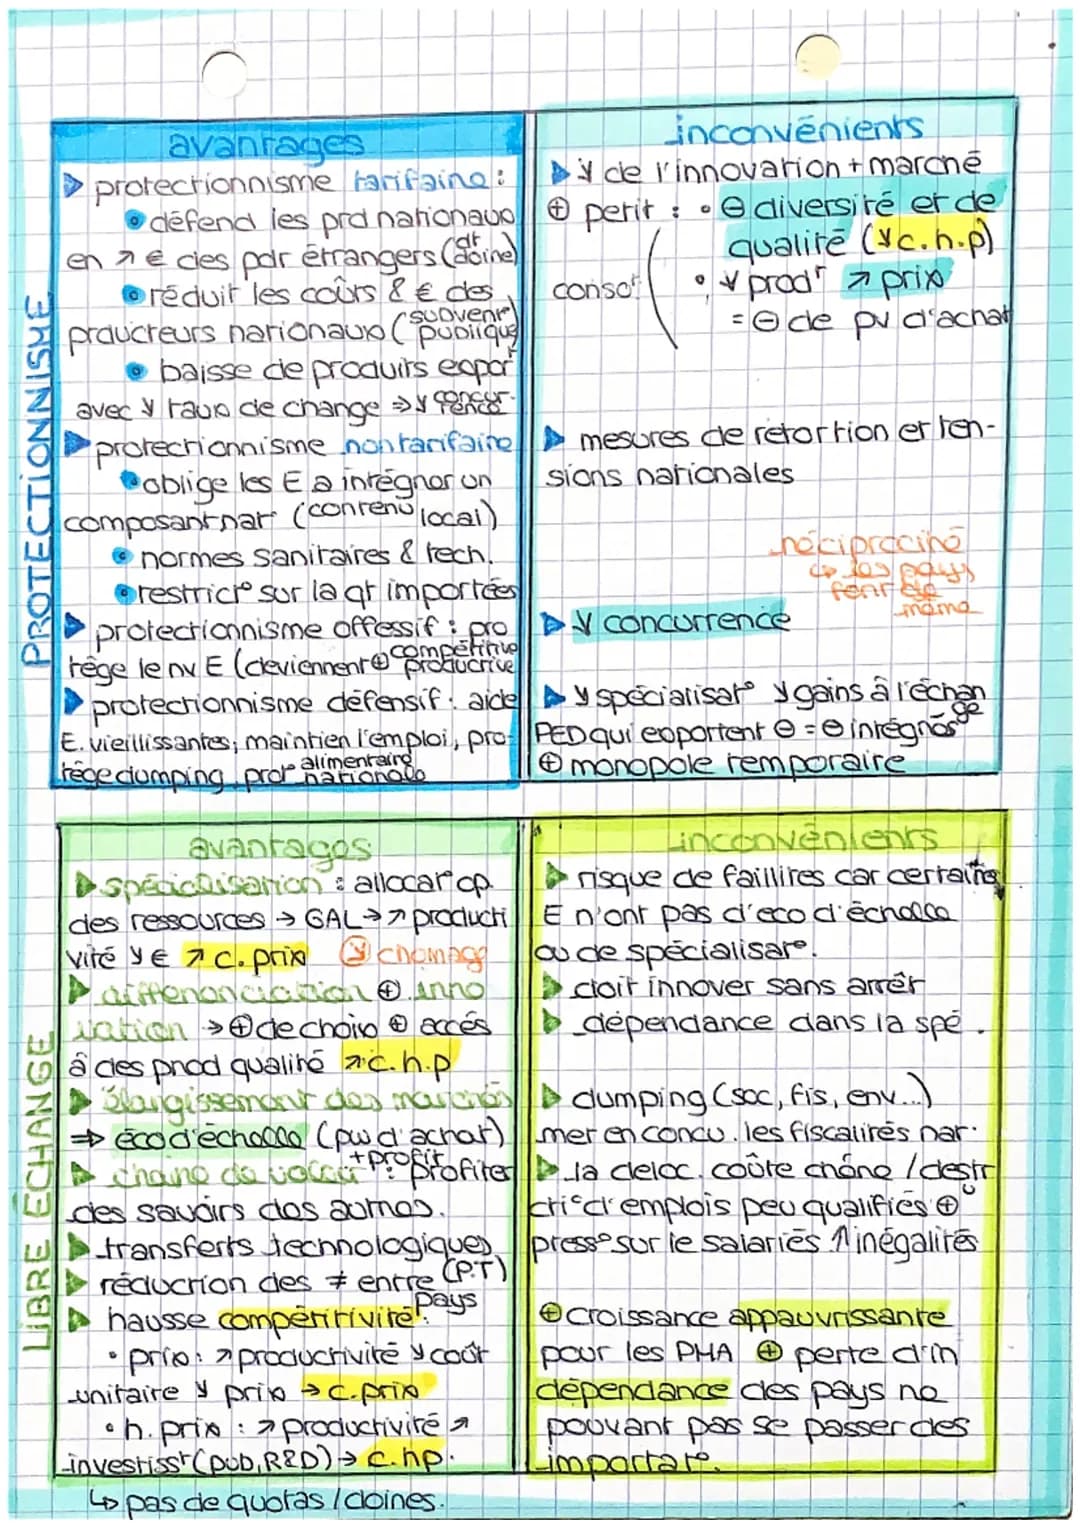 PROTECTIONNISME
avantages
protectionnisme tarifaire :
défend les prd nationaux
en ↗ € des pdr étrangers (dt doine)
réduit les coûts & € des
prducteurs nationaux (subvent° publique)
baisse de produits export
avec ↘ taux de change ⇒ ↘ concurrence
protectionnisme non tarifaire
oblige les E à intégrer un
composant nat (contenu local)
normes sanitaires & tech.
restrict° sur la qt importées
protectionnisme offessif : pro
tège le nv E (deviennent ⊕ compétitive productive
protectionnisme défensif : aide
E. vieillissantes, maintien l'emploi, pro-
tège dumping, prot° alimentaire nationale
inconvénients
↘ de l'innovation + marché
⊕ petit : • ⊖ diversité et de
qualité (↘ c.h.p)
conso
• ↘ prod° ↗ prix
= ⊖ de pv d'achat
mesures de rétortion et ten-
sions nationales
réciprocité
↳ les pays
font de
même
↘ concurrence
↘ spécialisat° ↘ gains à l'échange
PED qui exportent ⊖ = ⊖ intégrés
⊕ monopole temporaire
LIBRE ÉCHANGE
avantages
spécialisation : allocat° op.
des ressources → GAL → ↗ producti
vité ↘ € ↗ c. prix ↘ chomage
différenciation ⊕ inno
vation → ⊕ de choix ⊕ accès
à des prod qualité ↗ c.h.p
élargissement des marchés
⇒ éco d'échelle (pw d'achat)
+ profit
chaine de valeur : profiter
des savoirs des autres.
transferts technologiques
(P.T)
réduction des ≠ entre pays
hausse compétitivité :
• prix : ↗ productivité ↘ coût
unitaire ↘ prix → c.prix
• h. prix : ↗ productivité ↗
investisst (pub, R&D) → c.hp.
↳ pas de quotas / doines.
inconvénients
risque de faillites car certaines
E n'ont pas d'eco d'échelle
ou de spécialisat°.
doit innover sans arrêt
dépendance dans la spé.
dumping (soc, fis, env...)
met en concu. les fiscalités nat.
la deloc. coûte chône / destr
cti° d'emplois peu qualifiés ⊕
press° sur le salariés ↑ inégalités
⊕ croissance appauvrissante
pour les PMA ⊕ perte d'in
dépendance des pays ne
pouvant pas se passer des
importat°.